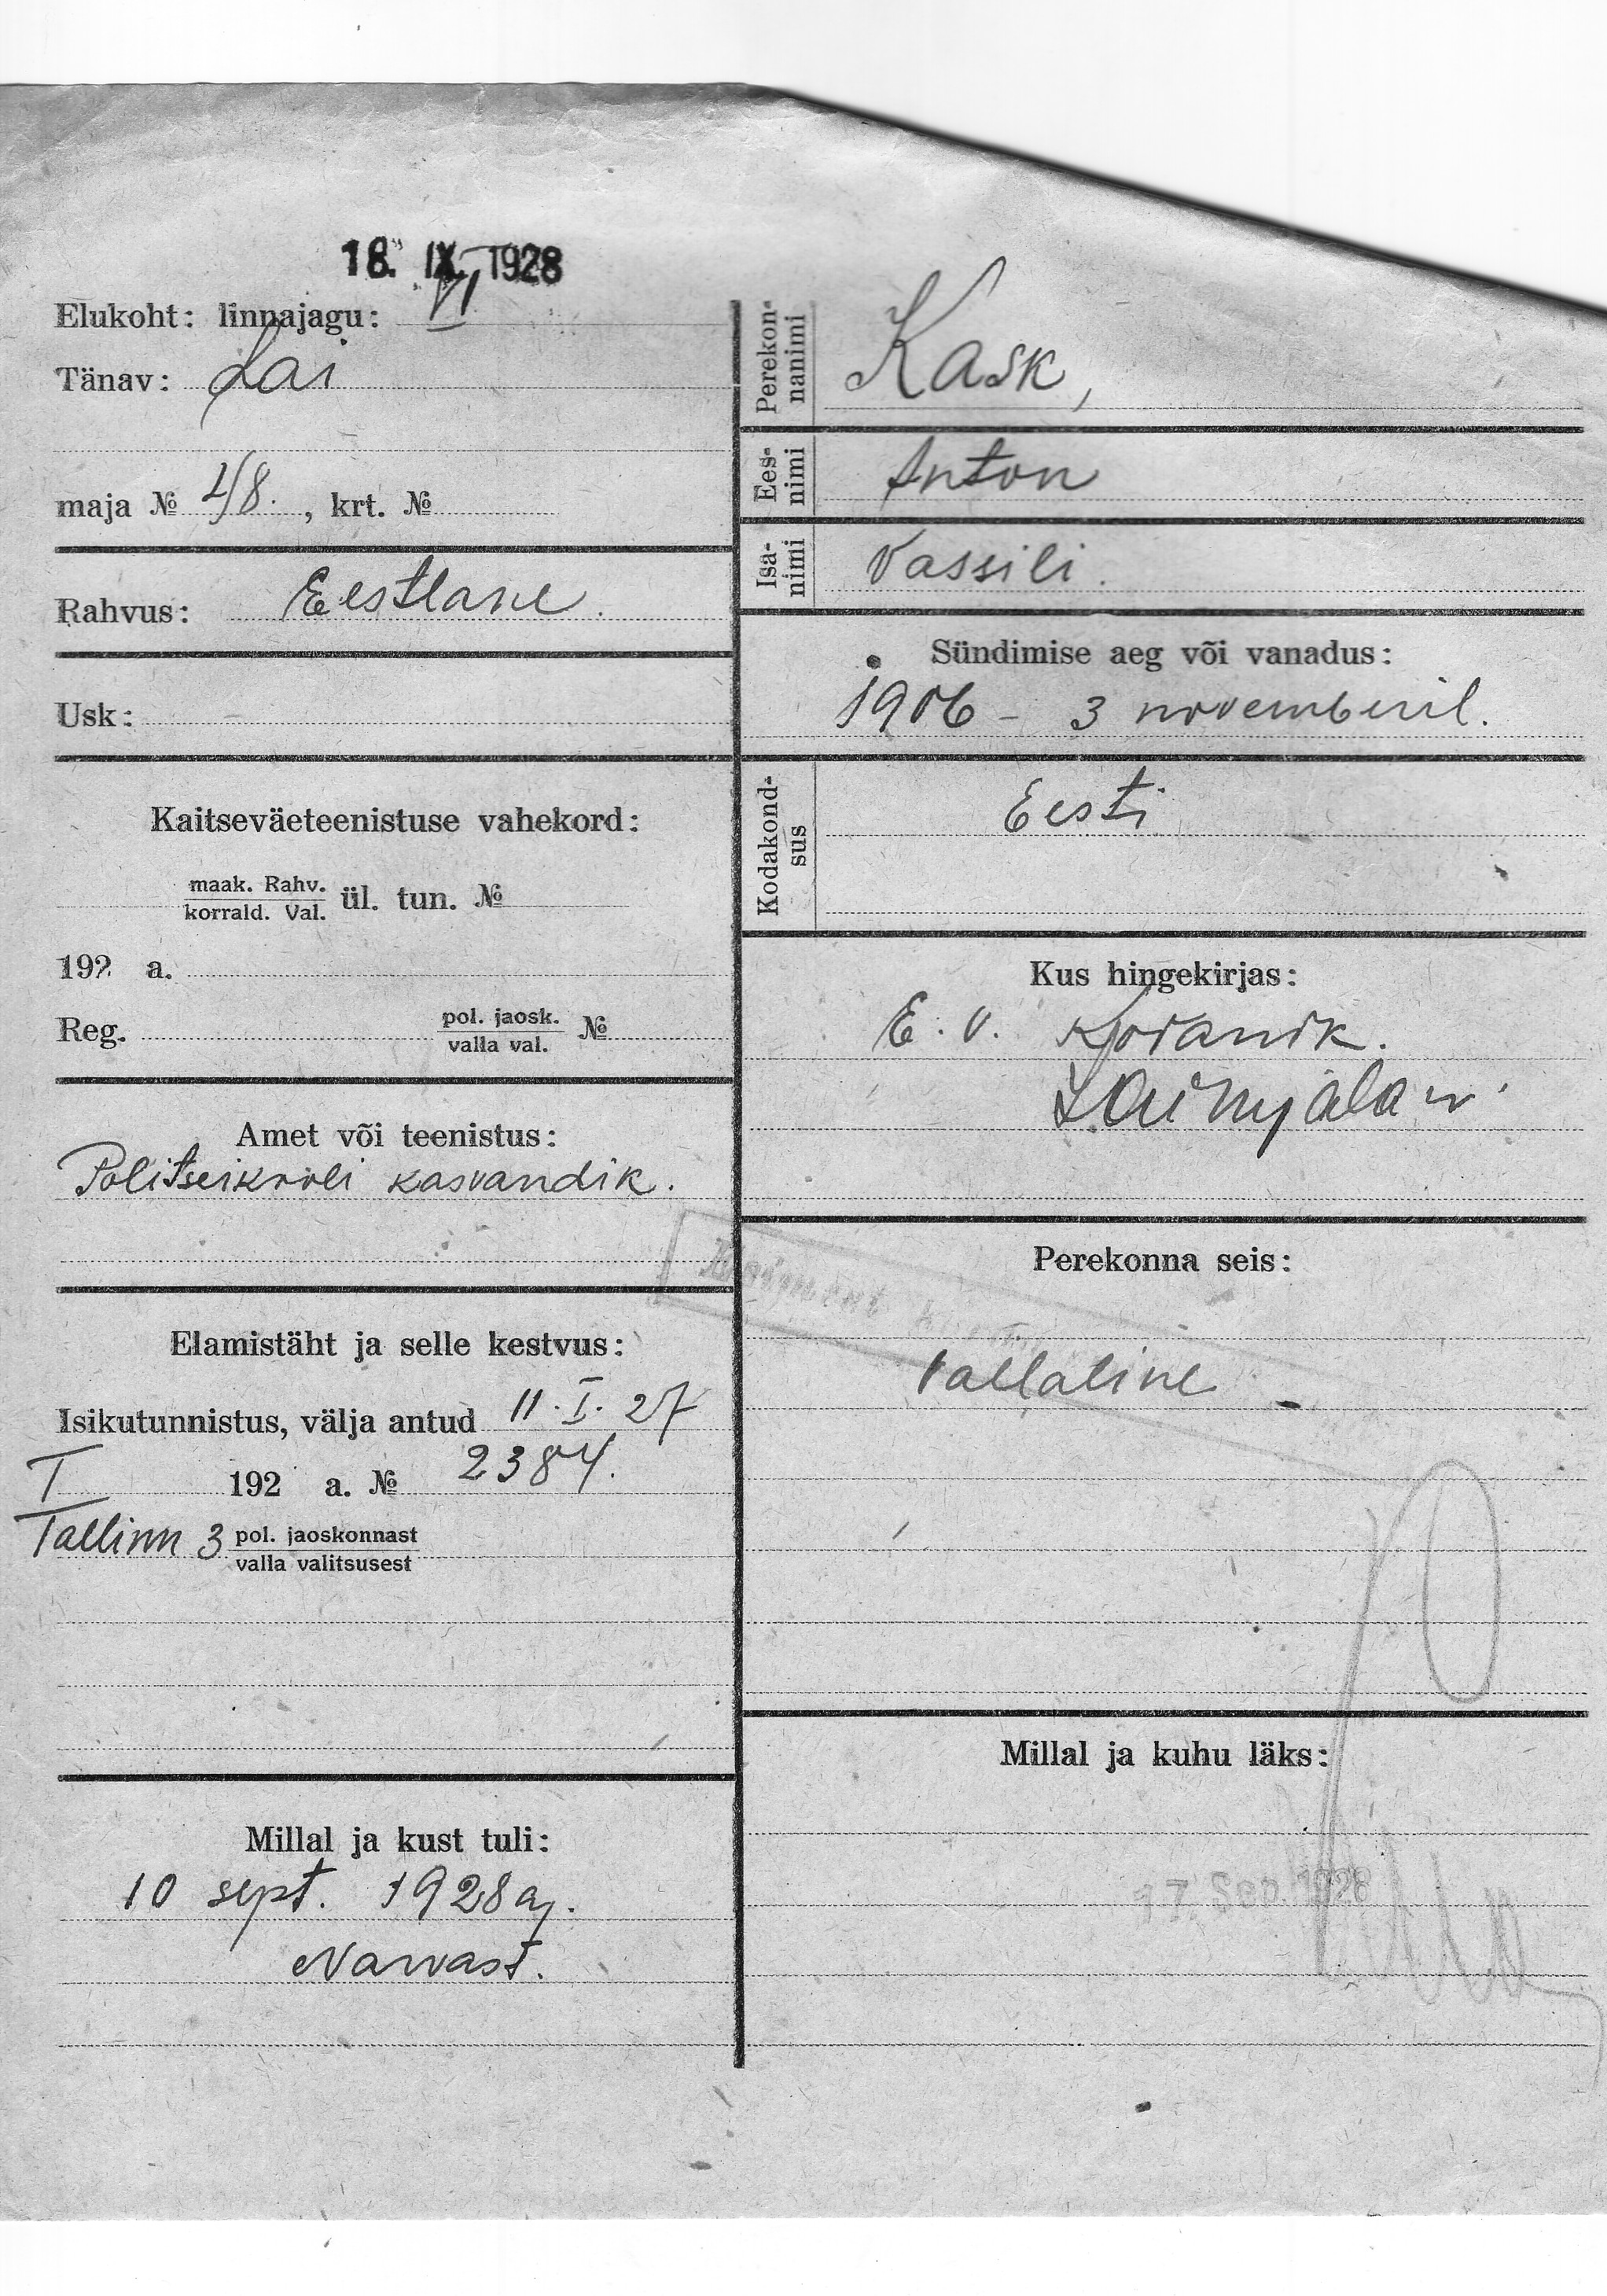 18. IX 1928
Elukoht: linnajagu: VI
Tänav: Lai
maja № 4/8. , krt. №
Rahvus: Eestlane.
Usk: –
Kaitseväeteenistuse vahekord:
maak. Rahv.
korrald. Val. ül. tun. №
192 a.
Reg. pol. jaosk. №
valla val.
Amet või teenistus:
Politseikooli kasvandik.
Elamistäht ja selle kestvus:
Isikutunnistus, välja antud 11. I. 27
T 192 a. № 2384.
Tallinn 3 pol. jaoskonnast
valla valitsusest
Millal ja kust tuli:
10 sept. 1928 a.
Narvast.
Perekon-
nanimi
Kask,
Ees-
nimi
Anton
Isa-
nimi
Vassili.
Sündimise aeg või vanadus:
1906 – 3 novembril.
Kodakond-
sus
Eesti
Kus hingekirjas:
E. V. Kodanik.
Perekonna seis:
Vallaline –
Millal ja kuhu läks:
17. Sep. 1928